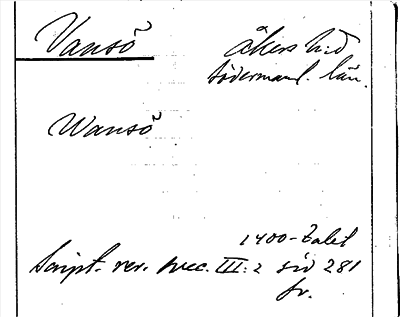 Vansö
Åkers hd
Södermanl. län.
Wansö
1400-talet
Script. rer. svec. III: 2 sid 281
fr.